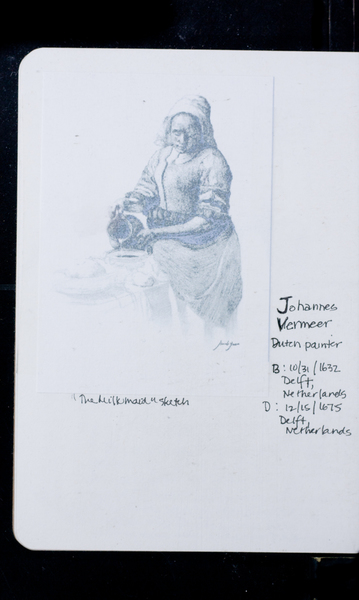 Johannes
Vermeer
Dutch painter
B: 10/31/1632
Delft,
Netherlands
D: 12/15/1675
Delft,
Netherlands
"The Milkmaid" sketch